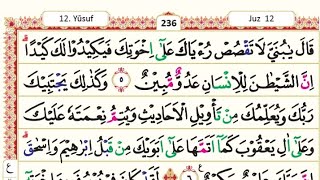 12. Yūsuf 236 Juz 12
قَالَ يٰبُنَيَّ لَا تَقْصُصْ رُءْيَاكَ عَلٰٓى اِخْوَتِكَ فَيَكِيْدُوْا لَكَ كَيْدًا ۗ
اِنَّ الشَّيْطٰنَ لِلْاِنْسَانِ عَدُوٌّ مُّبِيْنٌ ٥ وَكَذٰلِكَ يَجْتَبِيْكَ
رَبُّكَ وَيُعَلِّمُكَ مِنْ تَأْوِيْلِ الْاَحَادِيْثِ وَيُتِمُّ نِعْمَتَهٗ عَلَيْكَ
وَعَلٰٓى اٰلِ يَعْقُوْبَ كَمَآ اَتَمَّهَا عَلٰٓى اَبَوَيْكَ مِنْ قَبْلُ اِبْرٰهِيْمَ وَاِسْحٰقَ ۗ
ع